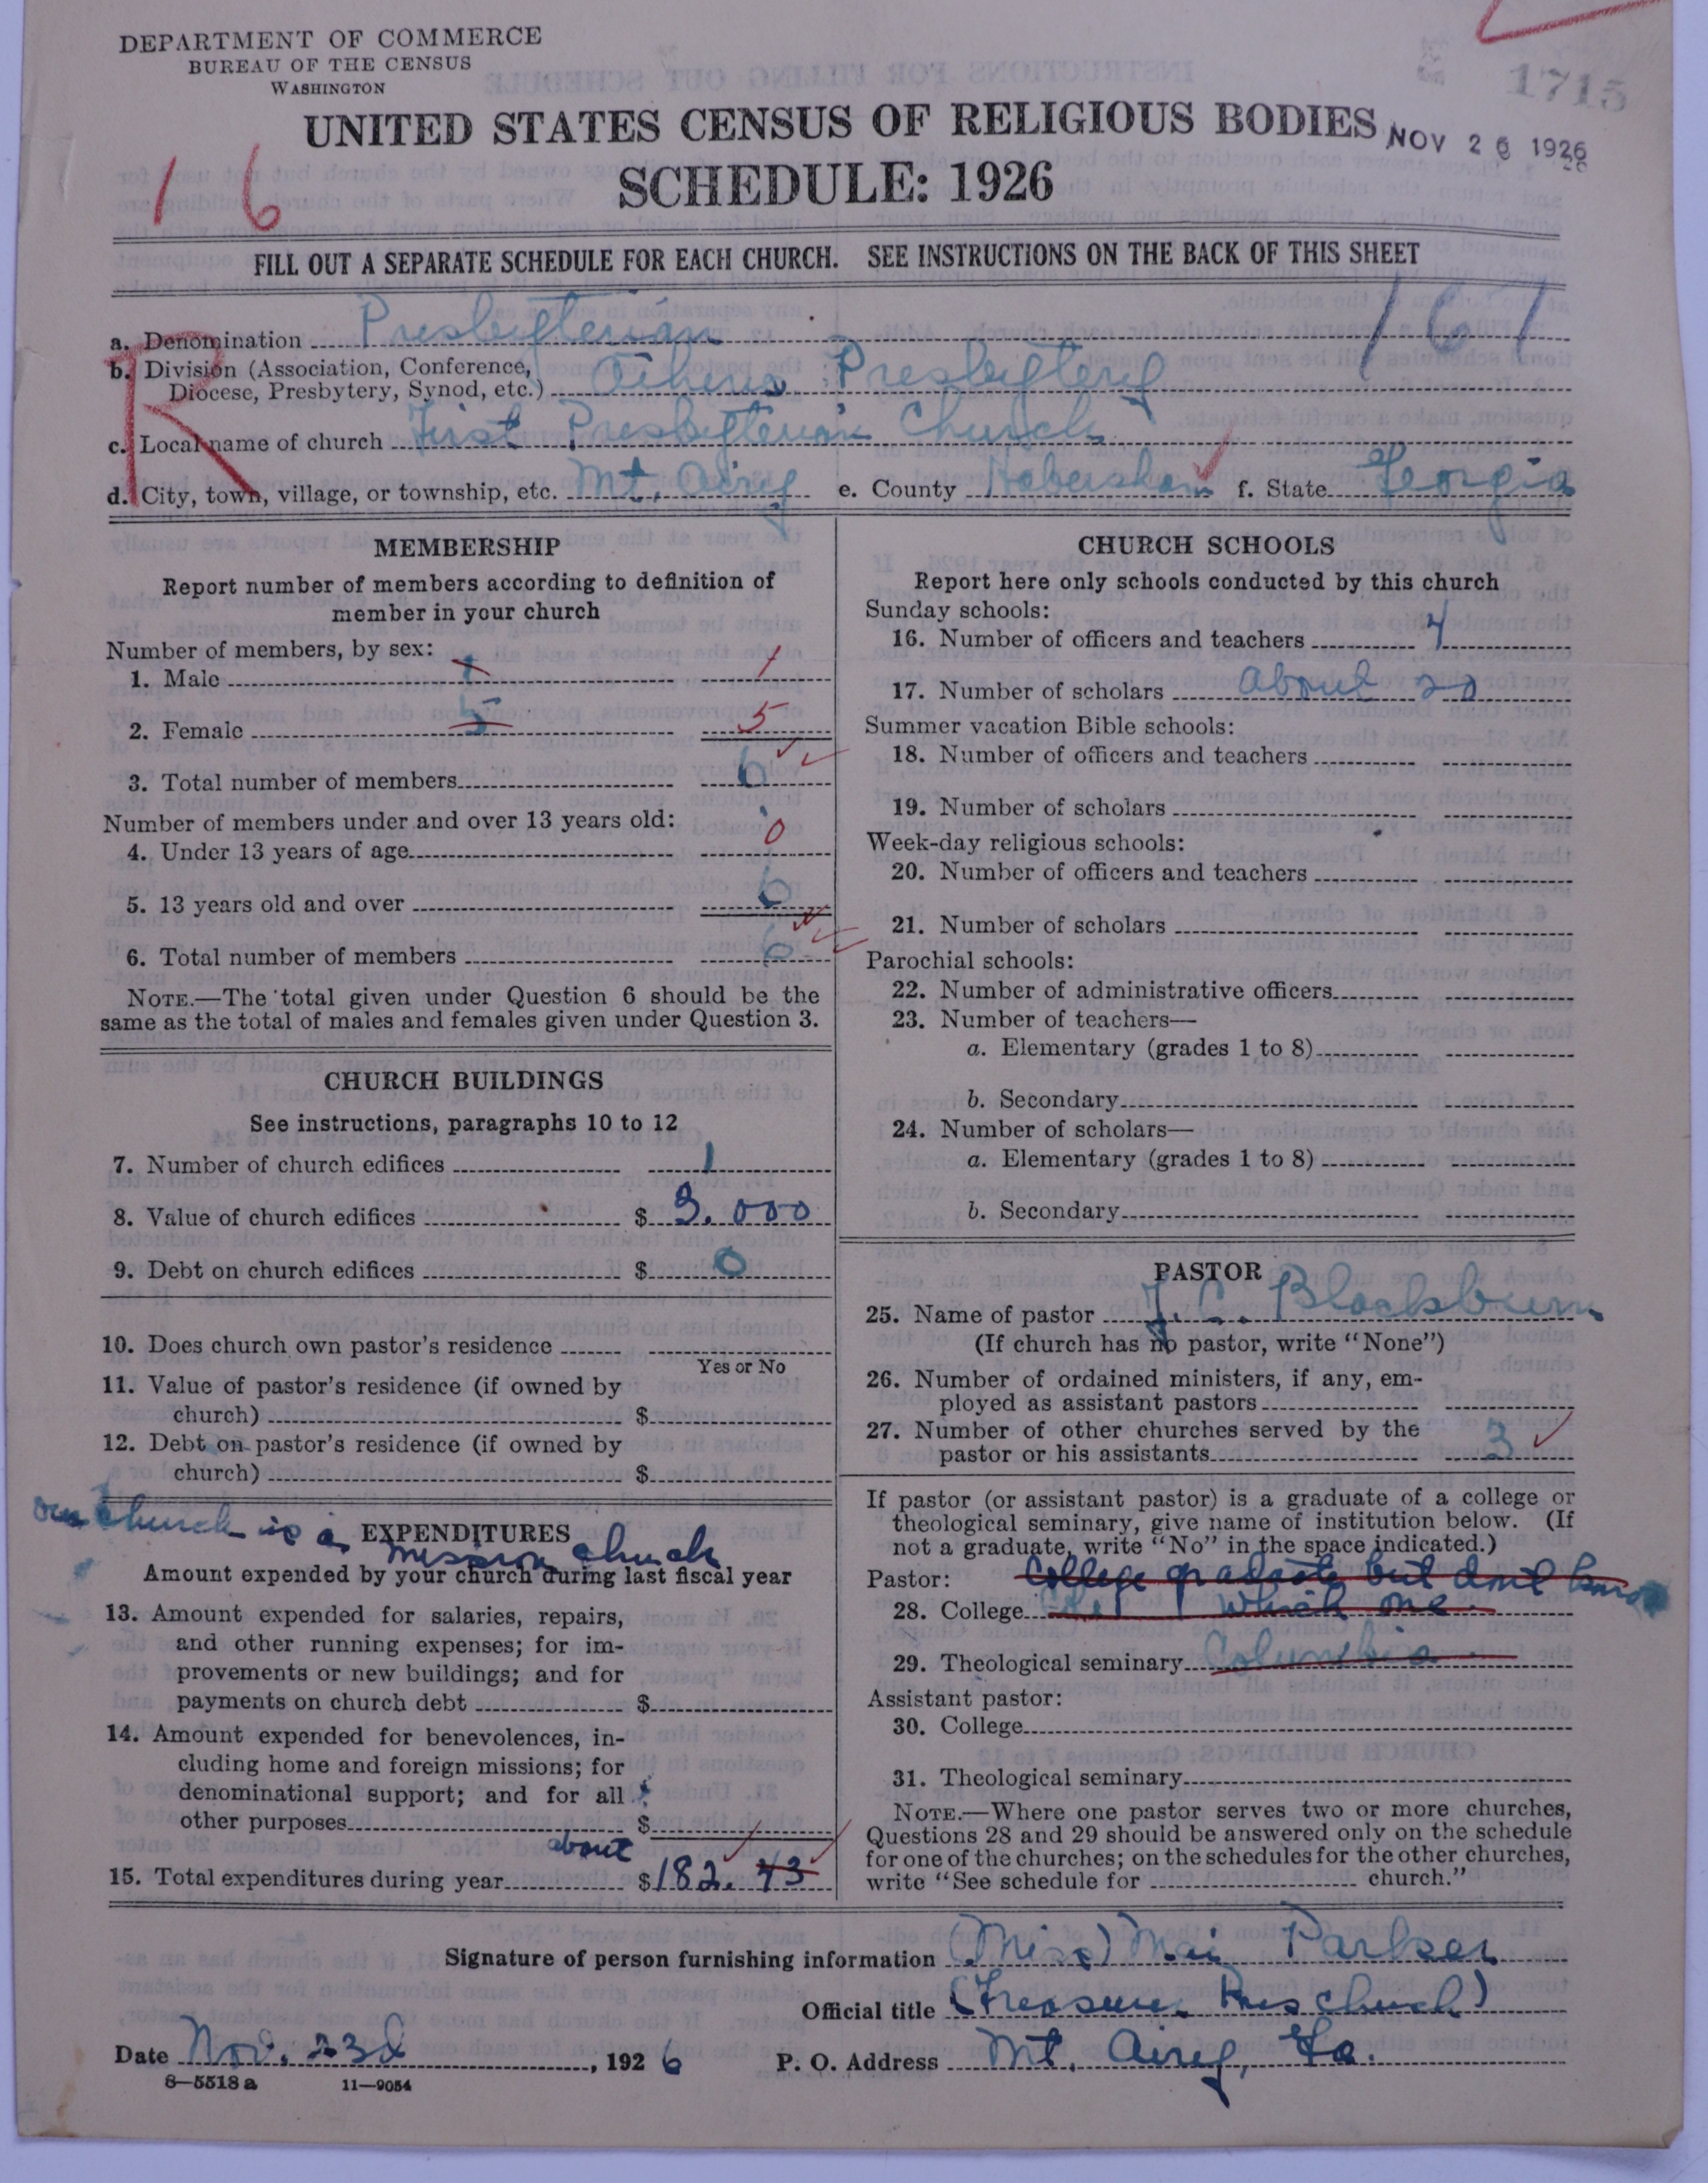 DEPARTMENT OF COMMERCE
BUREAU OF THE CENSUS
WASHINGTON
1715
UNITED STATES CENSUS OF RELIGIOUS BODIES
NOV 26 1926
SCHEDULE: 1926
16
FILL OUT A SEPARATE SCHEDULE FOR EACH CHURCH. SEE INSTRUCTIONS ON THE BACK OF THIS SHEET
R
161
a. Denomination Presbyterian
b. Division (Association, Conference,
Diocese, Presbytery, Synod, etc.) Athens Presbytery
c. Local name of church First Presbyterian Church
d. City, town, village, or township, etc. Mt. Airy e. County Habersham f. State Georgia
MEMBERSHIP
Report number of members according to definition of
member in your church
Number of members, by sex:
1. Male 1 1
2. Female 5 5
3. Total number of members 6
Number of members under and over 13 years old:
4. Under 13 years of age 0
5. 13 years old and over 6
6. Total number of members 6
NOTE.—The total given under Question 6 should be the
same as the total of males and females given under Question 3.
CHURCH BUILDINGS
See instructions, paragraphs 10 to 12
7. Number of church edifices 1
8. Value of church edifices $ 3.000
9. Debt on church edifices $ 0
10. Does church own pastor's residence
Yes or No
11. Value of pastor's residence (if owned by
church) $
12. Debt on pastor's residence (if owned by
church) $
our church is a mission church
EXPENDITURES
Amount expended by your church during last fiscal year
13. Amount expended for salaries, repairs,
and other running expenses; for im-
provements or new buildings; and for
payments on church debt $
14. Amount expended for benevolences, in-
cluding home and foreign missions; for
denominational support; and for all
other purposes $
about
15. Total expenditures during year $182.43
CHURCH SCHOOLS
Report here only schools conducted by this church
Sunday schools:
16. Number of officers and teachers 4
17. Number of scholars about 20
Summer vacation Bible schools:
18. Number of officers and teachers
19. Number of scholars
Week-day religious schools:
20. Number of officers and teachers
21. Number of scholars
Parochial schools:
22. Number of administrative officers
23. Number of teachers—
a. Elementary (grades 1 to 8)
b. Secondary
24. Number of scholars—
a. Elementary (grades 1 to 8)
b. Secondary
PASTOR
25. Name of pastor J. C. Blackburn
(If church has no pastor, write "None")
26. Number of ordained ministers, if any, em-
ployed as assistant pastors
27. Number of other churches served by the
pastor or his assistants 3
If pastor (or assistant pastor) is a graduate of a college or
theological seminary, give name of institution below. (If
not a graduate, write "No" in the space indicated.)
Pastor: College graduate but don't know
28. College which one.
29. Theological seminary Columbia
Assistant pastor:
30. College
31. Theological seminary
NOTE.—Where one pastor serves two or more churches,
Questions 28 and 29 should be answered only on the schedule
for one of the churches; on the schedules for the other churches,
write "See schedule for church."
Signature of person furnishing information (Miss) Mai Parker
Official title (Treasurer Pres church)
Date Nov. 23d, 1926 P. O. Address Mt. Airy, Ga.
8—5518 a 11—9054